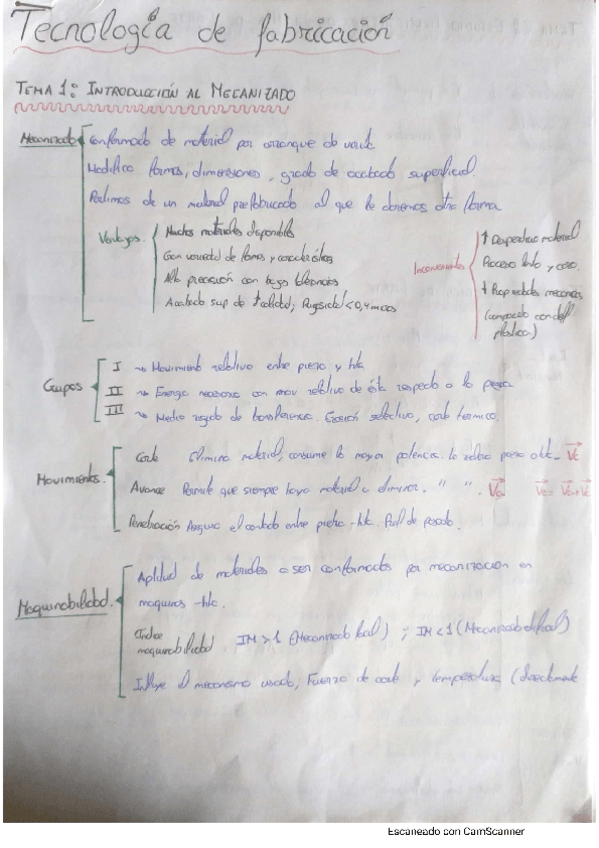 Tecnología de fabricación
TEMA 1: INTRODUCCIÓN AL MECANIZADO
Mecanizado
Conformado de material por arranque de viruta
Modifica formas, dimensiones, grado de acabado superficial.
Partimos de un material prefabricado al que le daremos otra forma
Ventajas.
Muchos materiales disponibles
Gran variedad de formas y características
Alta precisión con bajas tolerancias
Acabado sup de ↑ calidad; Rugosidad < 0,4 micras
Inconvenientes
↑ Desperdicio material
Proceso lento y caro.
↓ Propiedades mecánicas
(comparado con def plástica)
Grupos
I → Movimiento relativo entre pieza y hta
II → Energía necesaria con mov relativo de ésta respecto a la pieza
III → Medio rígido de transferencia. Erosión selectiva, corte térmico.
Movimientos.
Corte Elimina material, consume la mayor potencia. Lo realiza pieza o hta - Vc
Avance Permite que siempre haya material a eliminar. " " . Va Ve = Va + Vc
Penetración Asegura el contacto entre pieza - hta. Prof de pasada.
Maquinabilidad.
Aptitud de materiales a ser conformados por mecanización en
maquinas - hta.
Índice maquinabilidad IM > 1 (Mecanizado fácil) ; IM < 1 (Mecanizado difícil)
Influye el mecanismo usado, Fuerza de corte y temperatura (directamente
Escaneado con CamScanner